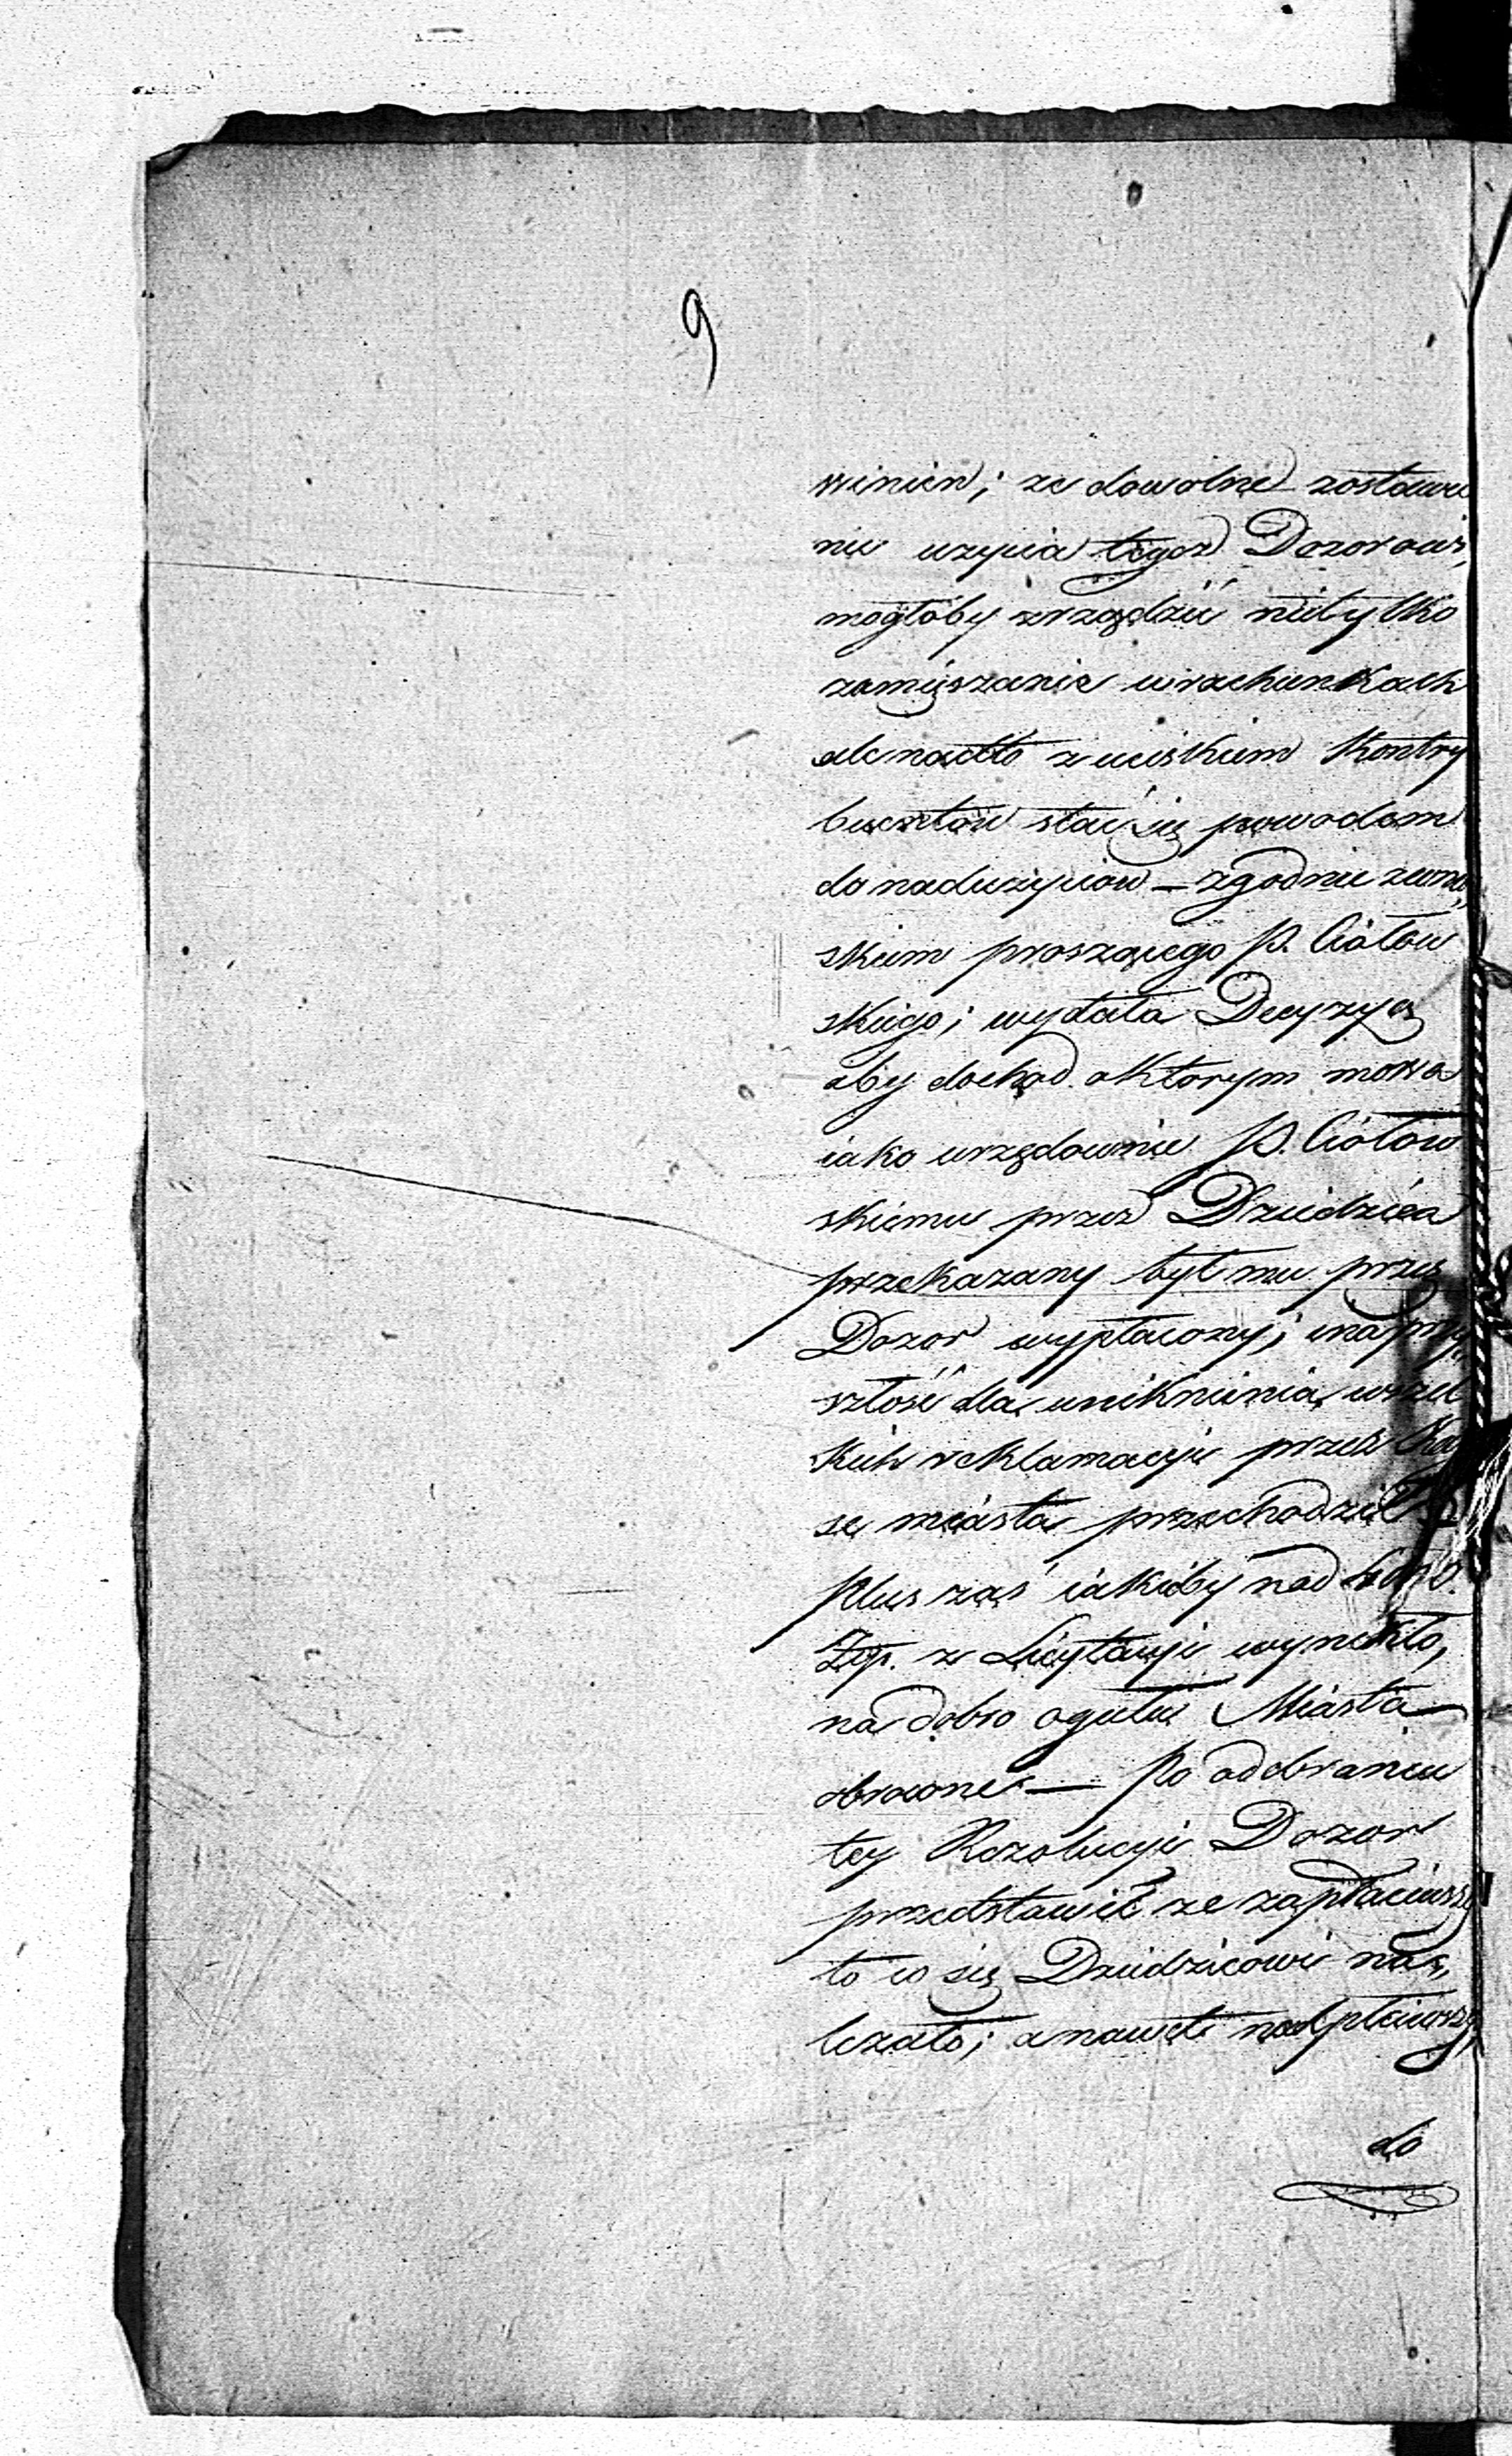 9
winien; ze dowolne zostawie
nie uzycia tegoz Dozorowi,
mogłoby zrządzić nietylko
zamięszanie w rachunkach
ale nadto z uciskiem Kontry
buentow stać się powodem
do nadużyciow — zgodnie z wnio
skiem proszącego P. Ciołkow
skiego; wydała Decyzyą
aby dochod o ktorym mowa
iako urzędownie P. Ciołkow
skiemu przez Dziedzica
przekazany był mu przez
Dozor wypłacony; i na przy
szłość dla uniknienia wszel
kich reklamacyi przez Ka
sę miasta przechodził
plus zaś iakiby nad
Złp. z Licytacyi wynikło,
na dobro ogułu Miasta
obrocone — Po odebraniu
tey Rezolucyi Dozor
przedstawił ze zapłaciwszy
to co się Dziedzicowi na
leżało; a nawet nadpłaciwszy
do